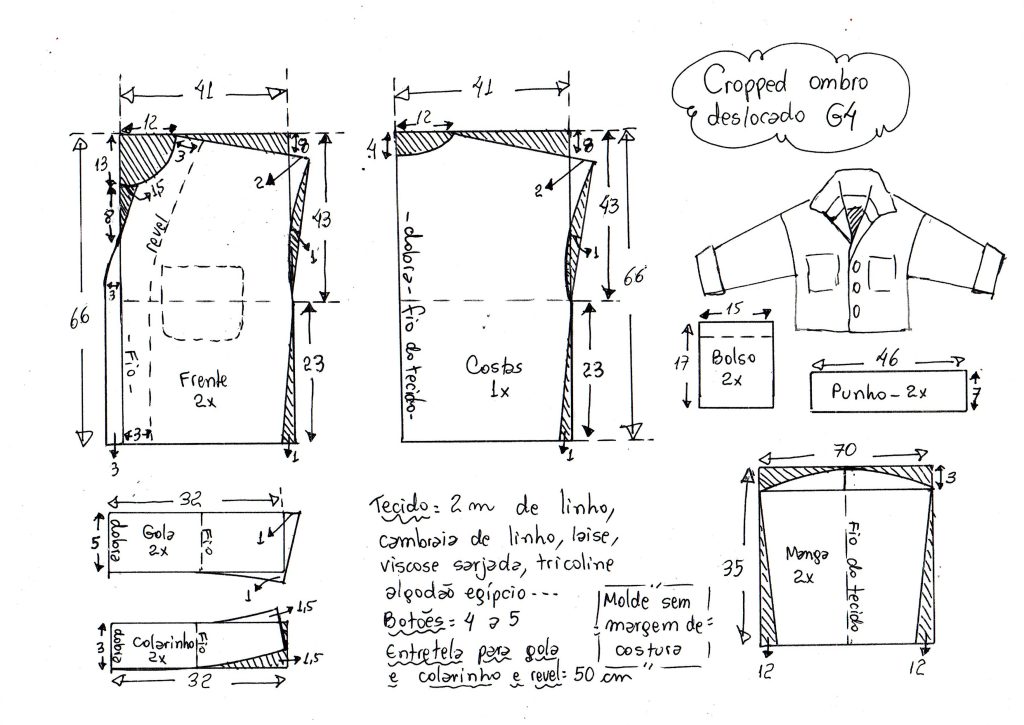 Cropped ombro
deslocado G4
41
12
13
3
8
1,5
8
2
43
1
revel
3
66
- Fio -
Frente
2x
23
3
3
1
41
12
4
8
2
43
1
66
-dobra- fio do tecido-
Costas
1x
23
1
15
17
Bolso
2x
46
Punho - 2x
7
32
5
dobra
Gola
2x
Fio
1
1
1,5
3
dobra
Colarinho
2x
Fio
1,5
32
Tecido: 2 m de linho,
cambraia de linho, laise,
viscose sarjada, tricoline
algodão egípcio ---
Botões = 4 a 5
Entretela para gola
e colarinho e revel = 50 cm
Molde sem
margem de
costura
70
3
35
Manga
2x
Fio do tecido
12
12